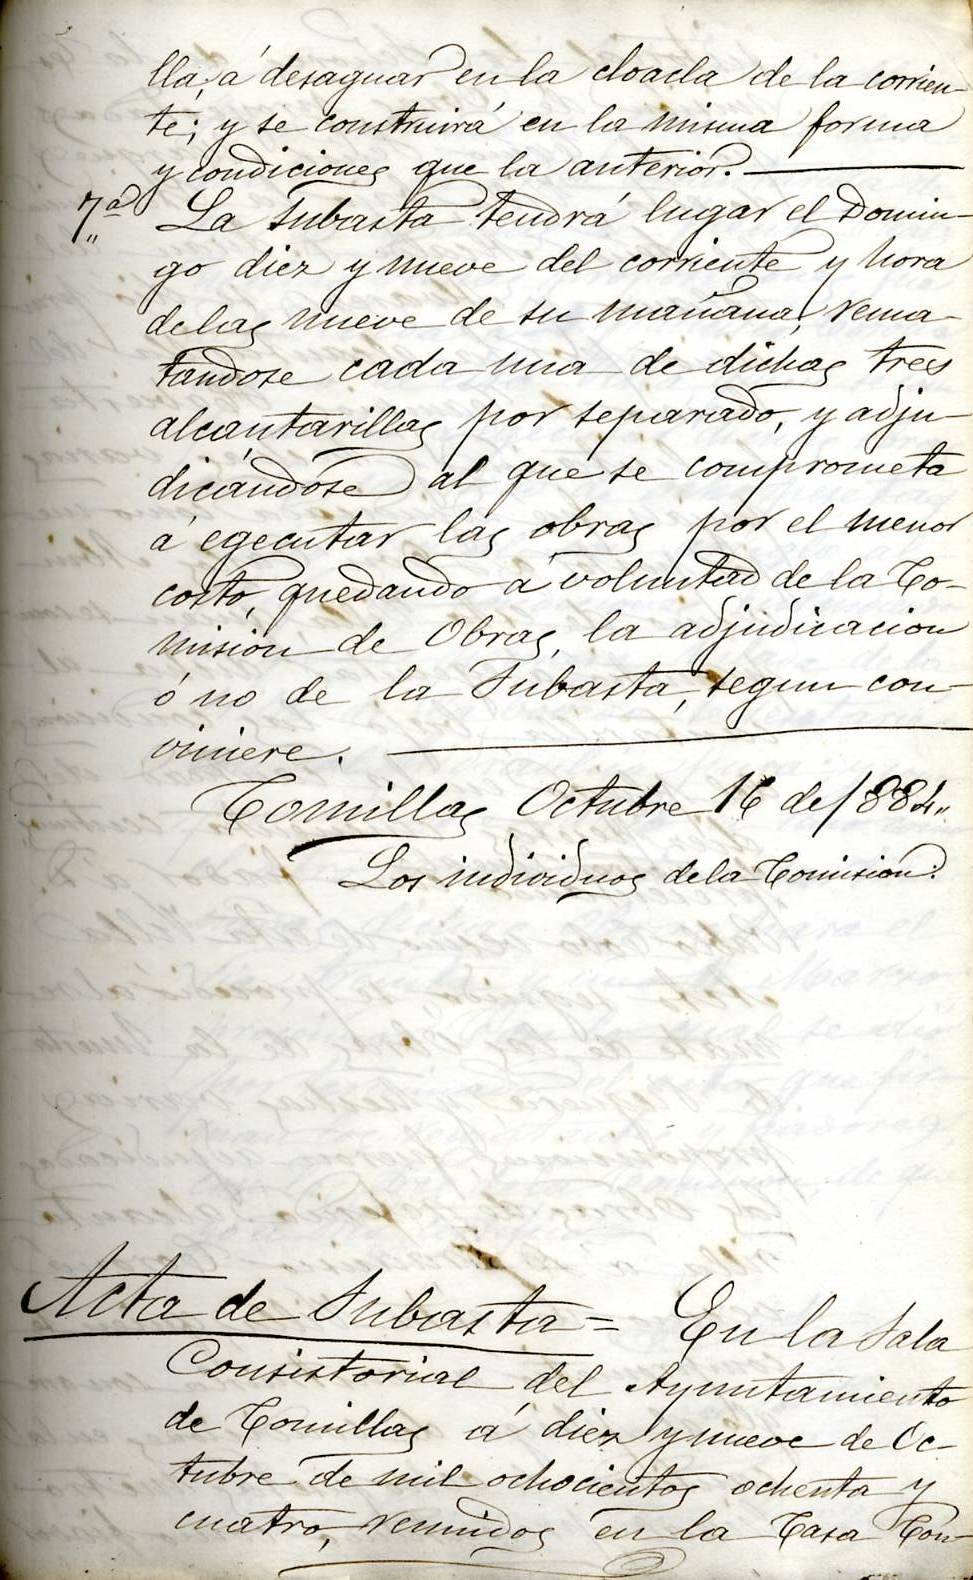 lla, á desaguar en la cloacla de la corrien-
te; y se construirá en la misma forma
y condiciones que la anterior.
7ª La Subasta tendrá lugar el Domin-
go diez y nueve del corriente y hora
de las nueve de su mañana, rema-
tandose cada una de dichas tres
alcantarillas por separado, y adju-
dicándose al que se comprometa
á egecutar las obras por el menor
costo, quedando á voluntad de la Co-
mision de Obras, la adjudicacion
ó no de la Subasta, segun con-
viniere.
Comillas Octubre 16 de 1884.
Los individuos de la Comision:
Acta de Subasta = En la Sala
Consistorial del Ayuntamiento
de Comillas á diez y nueve de Oc-
tubre de mil ochocientos ochenta y
cuatro, reunidos en la Casa Con-